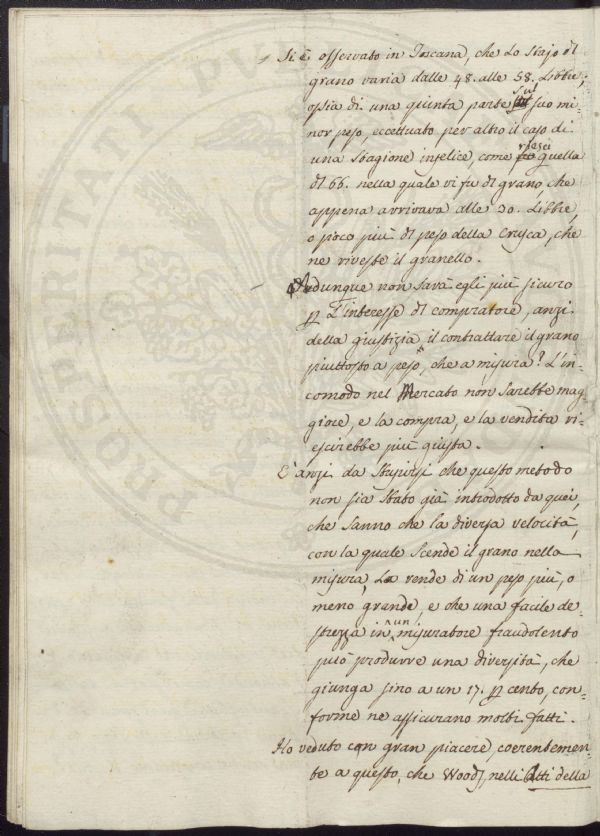 Si è osservato in Toscana, che lo Stajo di
grano varia dalle 48. alle 58. Libbre,
ossia di una quinta parte sul suo mi-
nor peso, eccettuato per altro il caso di
una Stagione infelice, come riescì quella
del 66. nella quale vi fu del grano, che
appena arrivava alle 30. Libbre,
o poco più del peso della Crusca, che
ne riveste il granello.
Adunque non sarà egli più sicuro
p L'interesse del compratore, anzi
della giustizia, il contrattare il grano
piuttosto a peso, che a misura? L'in-
comodo nel Mercato non sarebbe mag-
giore, e la compra, e la vendita ri-
escirebbe più giusta.
E' anzi da Stupirsi che questo metodo
non sia Stato già introdotto da quei,
che Sanno che la diversa velocità,
con la quale Scende il grano nella
misura, La rende di un peso più, o
meno grande, e che una facile de-
strezza in un misuratore fraudolento
può produrre una diversità, che
giunga sino a un 17. p cento, con-
forme ne assicurano molti fatti.
Ho veduto con gran piacere, coerentemen-
te a questo, che Wood, nelli Atti della
PROSPERITATI PUBLICAE